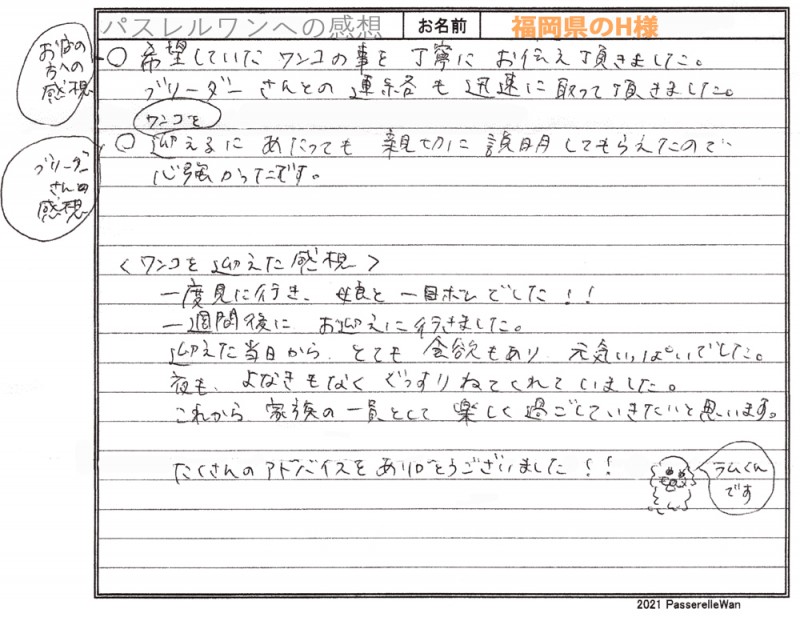 パスレルワンへの感想 お名前 福岡県のH様
お店の
方への
感想
○ 希望していた ワンコの事を 丁寧に お伝え頂きました。
ブリーダー さんとの 連絡も 迅速に 取って頂きました。
ワンコを
ブリーダー
さんの
感想
○ 迎えるに あたっても 親切に 説明してもらえたので
心強かったです。
<ワンコを 迎えた感想>
一度見に行き、 娘と 一目ボレでした!!
一週間後に お迎えに行きました。
迎えた当日から、とても 食欲もあり 元気いっぱいでした。
夜も、よなきもなく ぐっすり ねてくれていました。
これから 家族の一員として 楽しく過ごしていきたいと思います。
たくさんのアドバイスをありがとうございました!!
ラムくん
です
2021 PasserelleWan